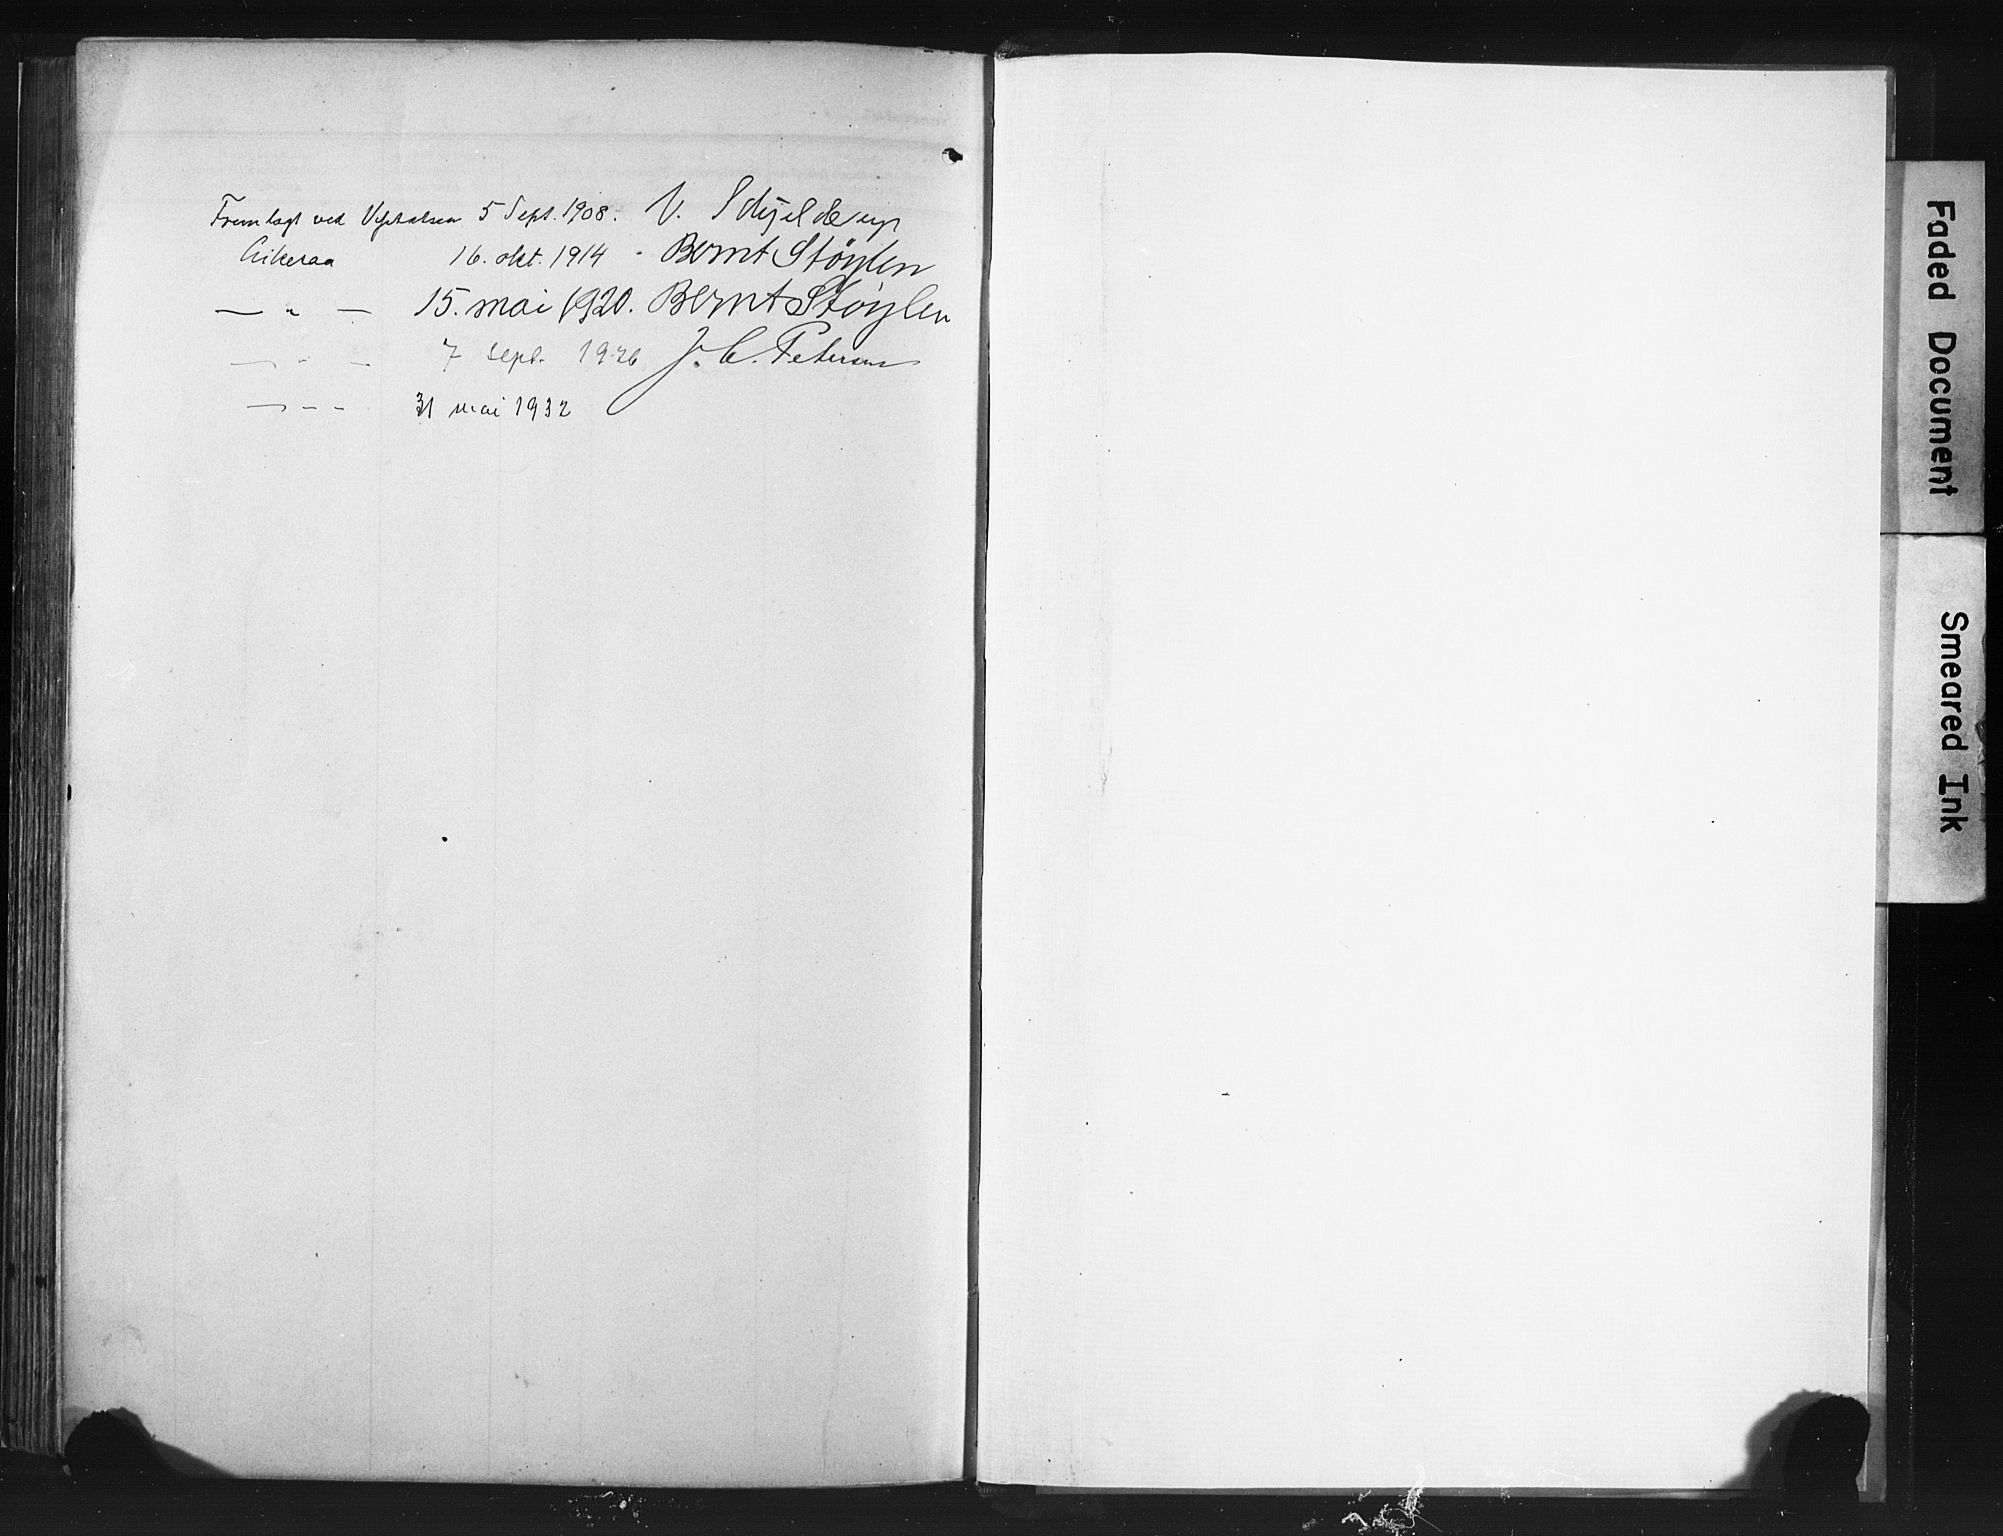 Fremlagt ved Visitatsen 5 Sept. 1908. V. Schjelderup
16. okt. 1914 - Bernt Støylen
— " — 15. mai 1920. Bernt Støylen
— " — 7 sept. 1926 J. C. Petersen
— - - 31 mai 1932
Faded Document
Smeared Ink